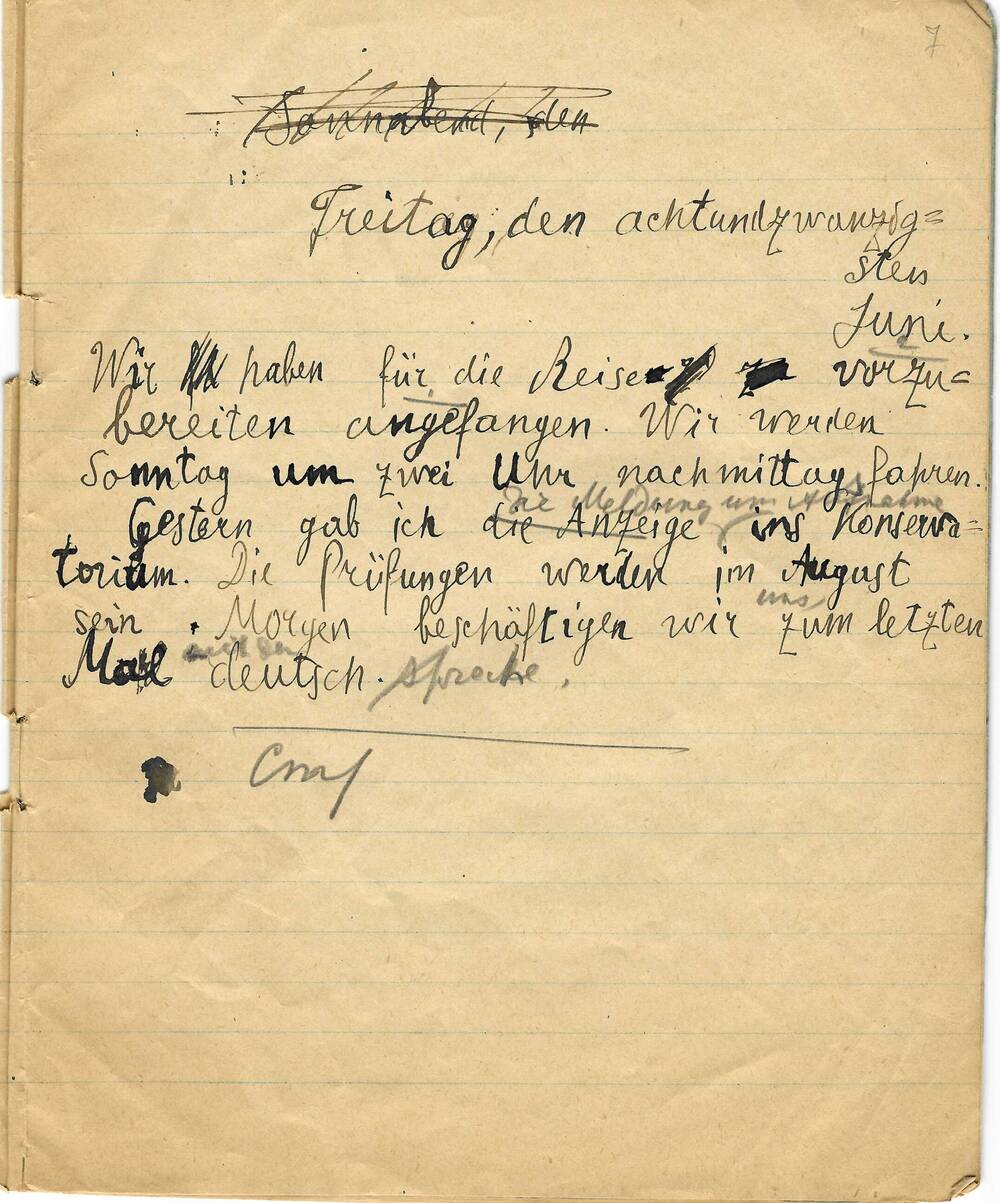 7
Sonnabend, den
Freitag, den achtundzwanzig=
sten
Juni.
Wir haben für die Reise vorzu=
bereiten angefangen. Wir werden
Sonntag um zwei Uhr nachmittag fahren.
die Meldung um Aufnahme
Gestern gab ich die Anzeige ins Konserva=
torium. Die Prüfungen werden im August
uns
sein. Morgen beschäftigen wir zum letzten
mit der
Mal deutsch. sprache.